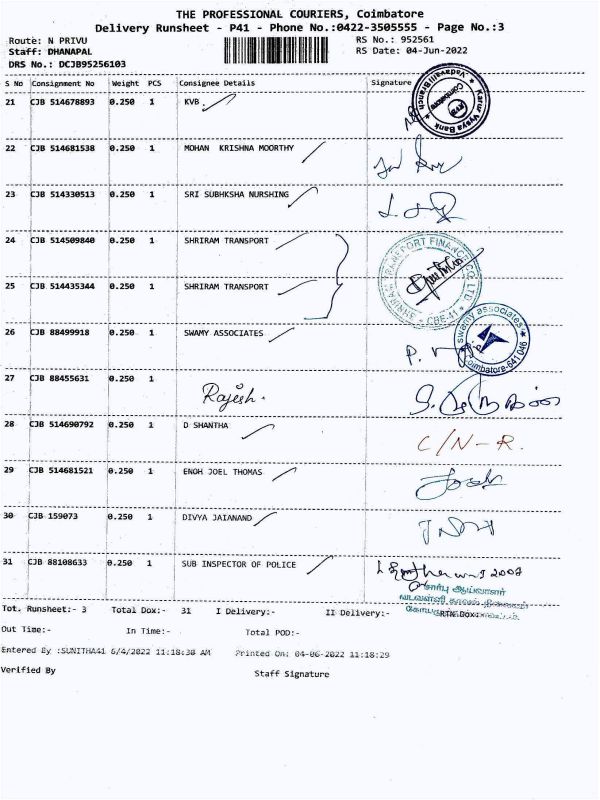 THE PROFESSIONAL COURIERS, Coimbatore
Delivery Runsheet - P41 - Phone No.:0422-3505555 - Page No.:3
Route: N PRIVU RS No.: 952561
Staff: DHANAPAL RS Date: 04-Jun-2022
DRS No.: DCJB95256103
S No Consignment No Weight PCS Consignee Details Signature
21 CJB 514678893 0.250 1 KVB
Karur Vysya Bank
Vadavalli Branch
KVB
Coimbatore
22 CJB 514681538 0.250 1 MOHAN KRISHNA MOORTHY
23 CJB 514330513 0.250 1 SRI SUBHKSHA NURSHING
24 CJB 514509840 0.250 1 SHRIRAM TRANSPORT
SHRIRAM TRANSPORT FINANCE CO. LTD
CBE-41
25 CJB 514435344 0.250 1 SHRIRAM TRANSPORT
26 CJB 88499918 0.250 1 SWAMY ASSOCIATES
swamy associates
coimbatore-641 046
27 CJB 88455631 0.250 1 Rajesh.
28 CJB 514690792 0.250 1 D SHANTHA C/N-R.
29 CJB 514681521 0.250 1 ENOH JOEL THOMAS
30 CJB 159073 0.250 1 DIVYA JAIANAND
31 CJB 88108633 0.250 1 SUB INSPECTOR OF POLICE
சார்பு ஆய்வாளர்
வடவள்ளி காவல் நிலையம்
Tot. Runsheet:- 3 Total Dox:- 31 I Delivery:- II Delivery:- RTN Dox:-
Out Time:- In Time:- Total POD:-
Entered By :SUNITHA41 6/4/2022 11:18:30 AM Printed On: 04-06-2022 11:18:29
Verified By Staff Signature